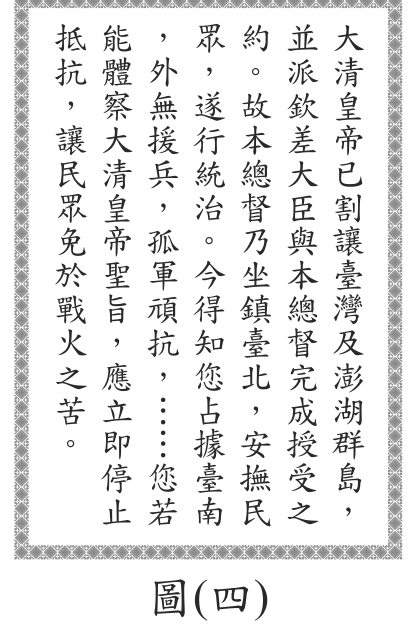 大清皇帝已割讓臺灣及澎湖群島，
並派欽差大臣與本總督完成授受之
約。故本總督乃坐鎮臺北，安撫民
眾，遂行統治。今得知您占據臺南
，外無援兵，孤軍頑抗，……您若
能體察大清皇帝聖旨，應立即停止
抵抗，讓民眾免於戰火之苦。
圖(四)